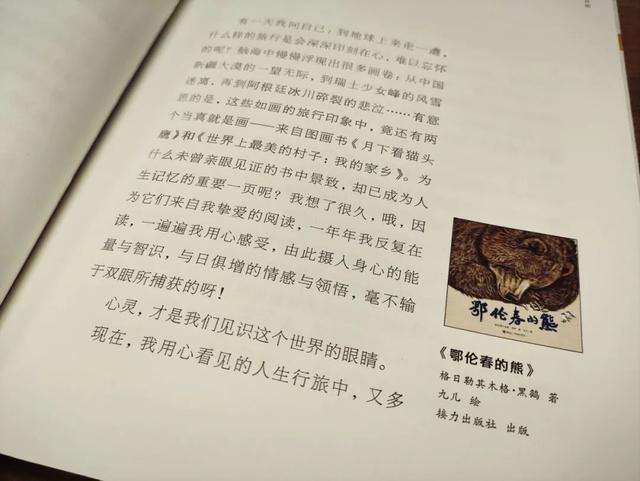 有一天我问自己：到地球上来走一遭，
什么样的旅行是会深深印刻在心，难以忘怀
的呢？脑海中慢慢浮现出很多画卷：从中国
新疆大漠的一望无际，到瑞士少女峰的风雪
迷离，再到阿根廷冰川碎裂的悲泣……有意
思的是，这些如画的旅行印象中，竟还有两
个当真就是画——来自图画书《月下看猫头
鹰》和《世界上最美的村子：我的家乡》。为
什么未曾亲眼见证的书中景致，却已成为人
生记忆的重要一页呢？我想了很久，哦，因
为它们来自我挚爱的阅读，一年年我反复在
读，一遍遍我用心感受，由此摄入身心的能
量与智识，与日俱增的情感与领悟，毫不输
于双眼所捕获的呀！
心灵，才是我们见识这个世界的眼睛。
现在，我用心看见的人生行旅中，又多
鄂伦春的熊
《鄂伦春的熊》
格日勒其木格·黑鹤 著
九儿 绘
接力出版社 出版